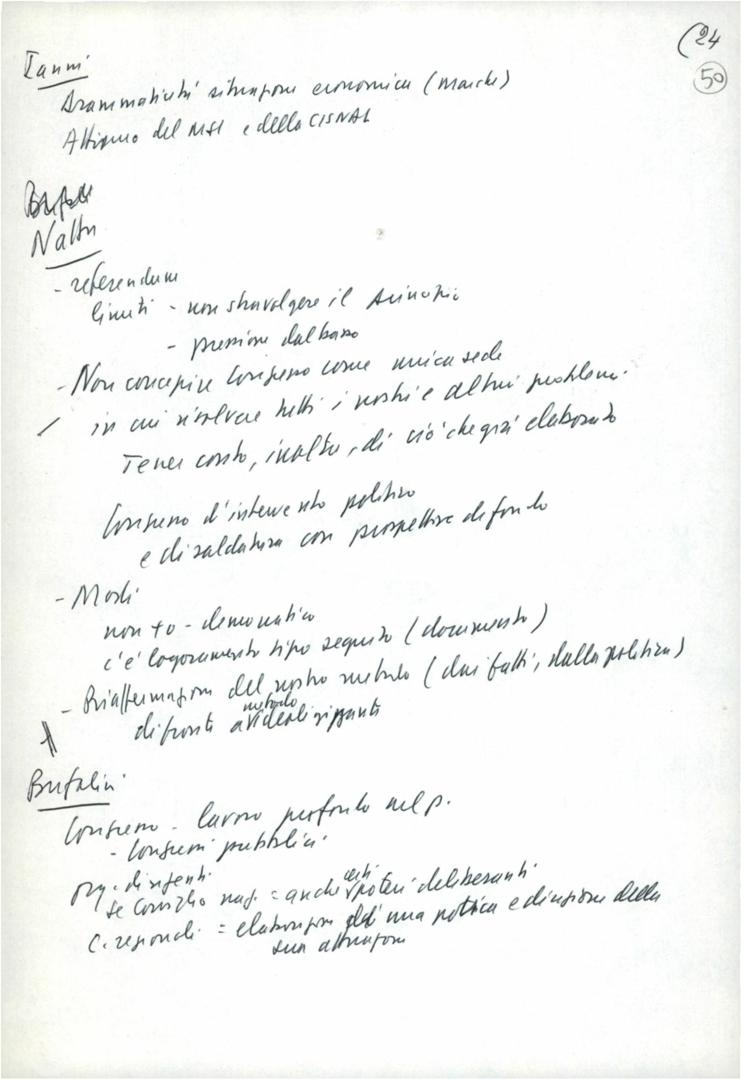 (24
50
Ianni
Drammaticità situazione economica (Marche)
Attivismo del MSI e della CISNAL
Natta
- referendum
limiti - non stravolgere il
- pressione dal basso
- Non concepire Congresso come unica sede
in cui risolvere tutti i nostri e altrui problemi.
Tener conto, inoltre, di ciò che già elaborato
Congresso d'intervento politico
e di saldatura con prospettive di fondo
- Modi
non to - democratico
c'è logoramento tipo seguito (documento)
- Riaffermazione del nostro metodo (dai fatti, dalla politica)
di fronte a metodo
Bufalini
Congresso - lavoro profondo nel p.
- Congressi pubblici
org. dirigenti
se Consiglio naz. = anche certi poteri deliberanti
C. regionali = elaborazione di una politica e direzione della
sua attuazione